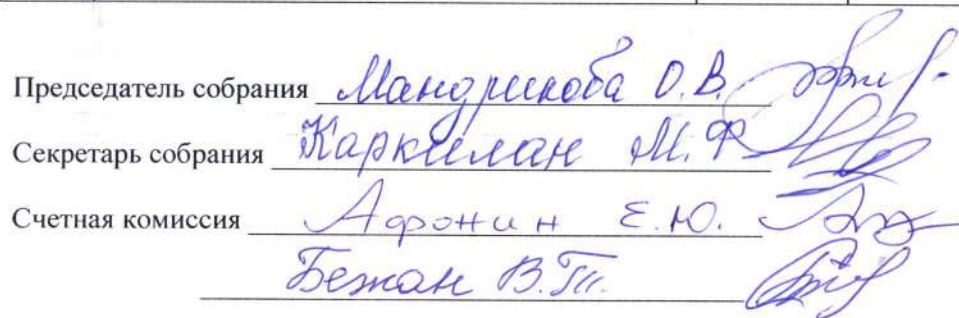 Председатель собрания Мандрикова О.В.
Секретарь собрания Каркилан М.Ф
Счетная комиссия Афонин Е.Ю.
Бежан В.Т.